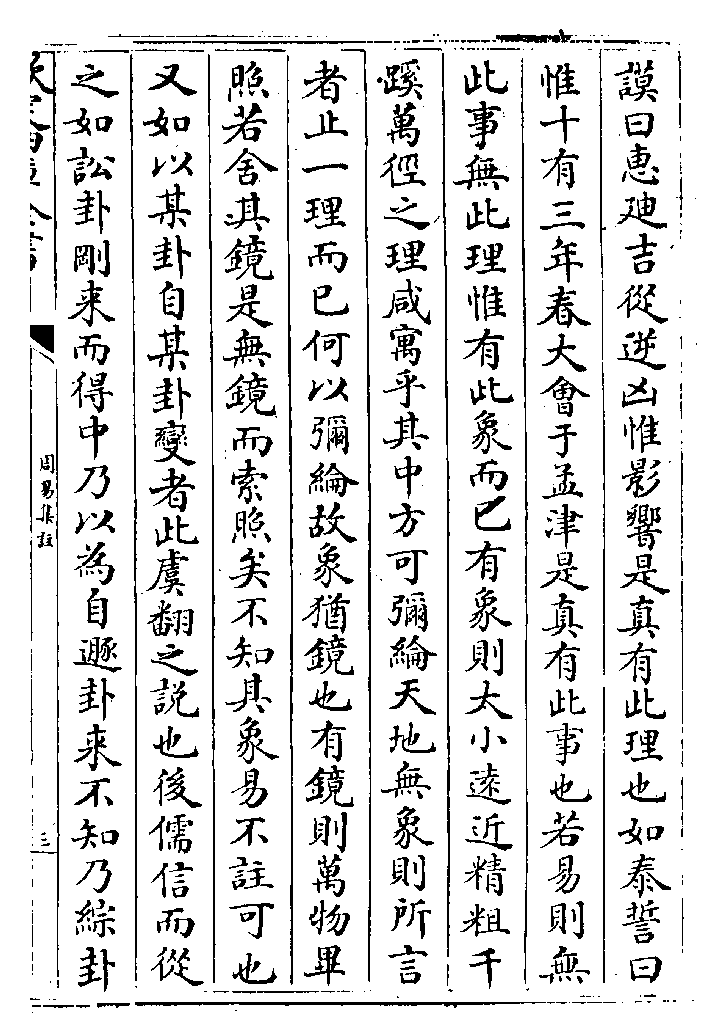 謨曰惠廸吉從逆凶惟影響是真有此理也如泰誓曰
惟十有三年春大㑹于孟津是真有此事也若易則無
此事無此理惟有此象而已有象則大小逺近精粗千
蹊萬徑之理咸寓乎其中方可彌綸天地無象則所言
者止一理而已何以彌綸故象猶鏡也有鏡則萬物畢
照若舍其鏡是無鏡而索照矣不知其象易不註可也
又如以某卦自某卦變者此虞翻之説也後儒信而從
之如訟卦剛来而得中乃以為自遯卦来不知乃綜卦
周易集註
三